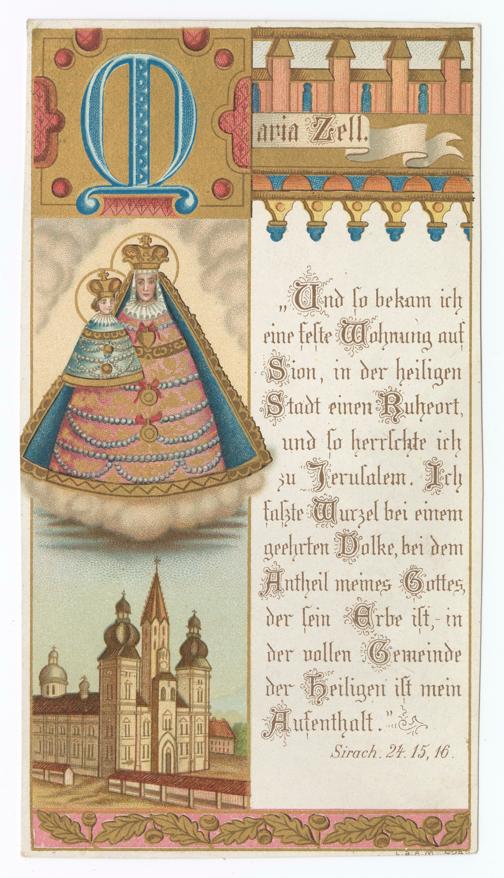 Maria Zell.
„Und so bekam ich
eine feste Wohnung auf
Sion, in der heiligen
Stadt einen Ruheort,
und so herrschte ich
zu Jerusalem. Ich
faßte Wurzel bei einem
geehrten Volke, bei dem
Antheil meines Gottes,
der sein Erbe ist,- in
der vollen Gemeinde
der Heiligen ist mein
Aufenthalt."
Sirach. 24. 15, 16.